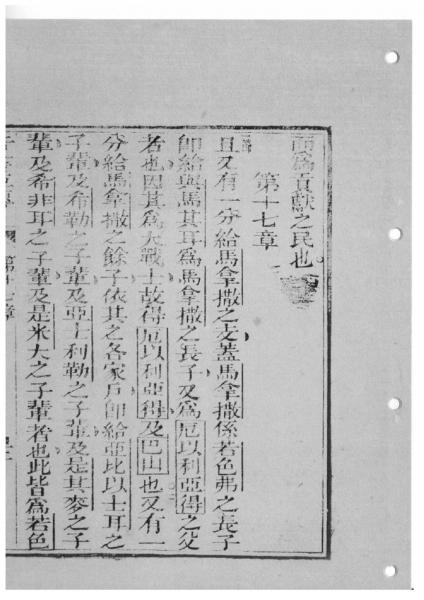 而為貢獻之民也
第十七章
且又有一分給馬拿撒之支蓋馬拿撒係若色弗之長子
即給與馬其耳為馬拿撒之長子又為厄以利亞得之父
者也因其為大戰士故得厄以利亞得及巴山也又有一
分給馬拿撒之餘子依其之各家戶即給亞比以士耳之
子輩及希勒之子輩及亞士利勒之子輩及是其麥之子
輩及希非耳之子輩及是米大之子輩者也此皆為若色
第十七章